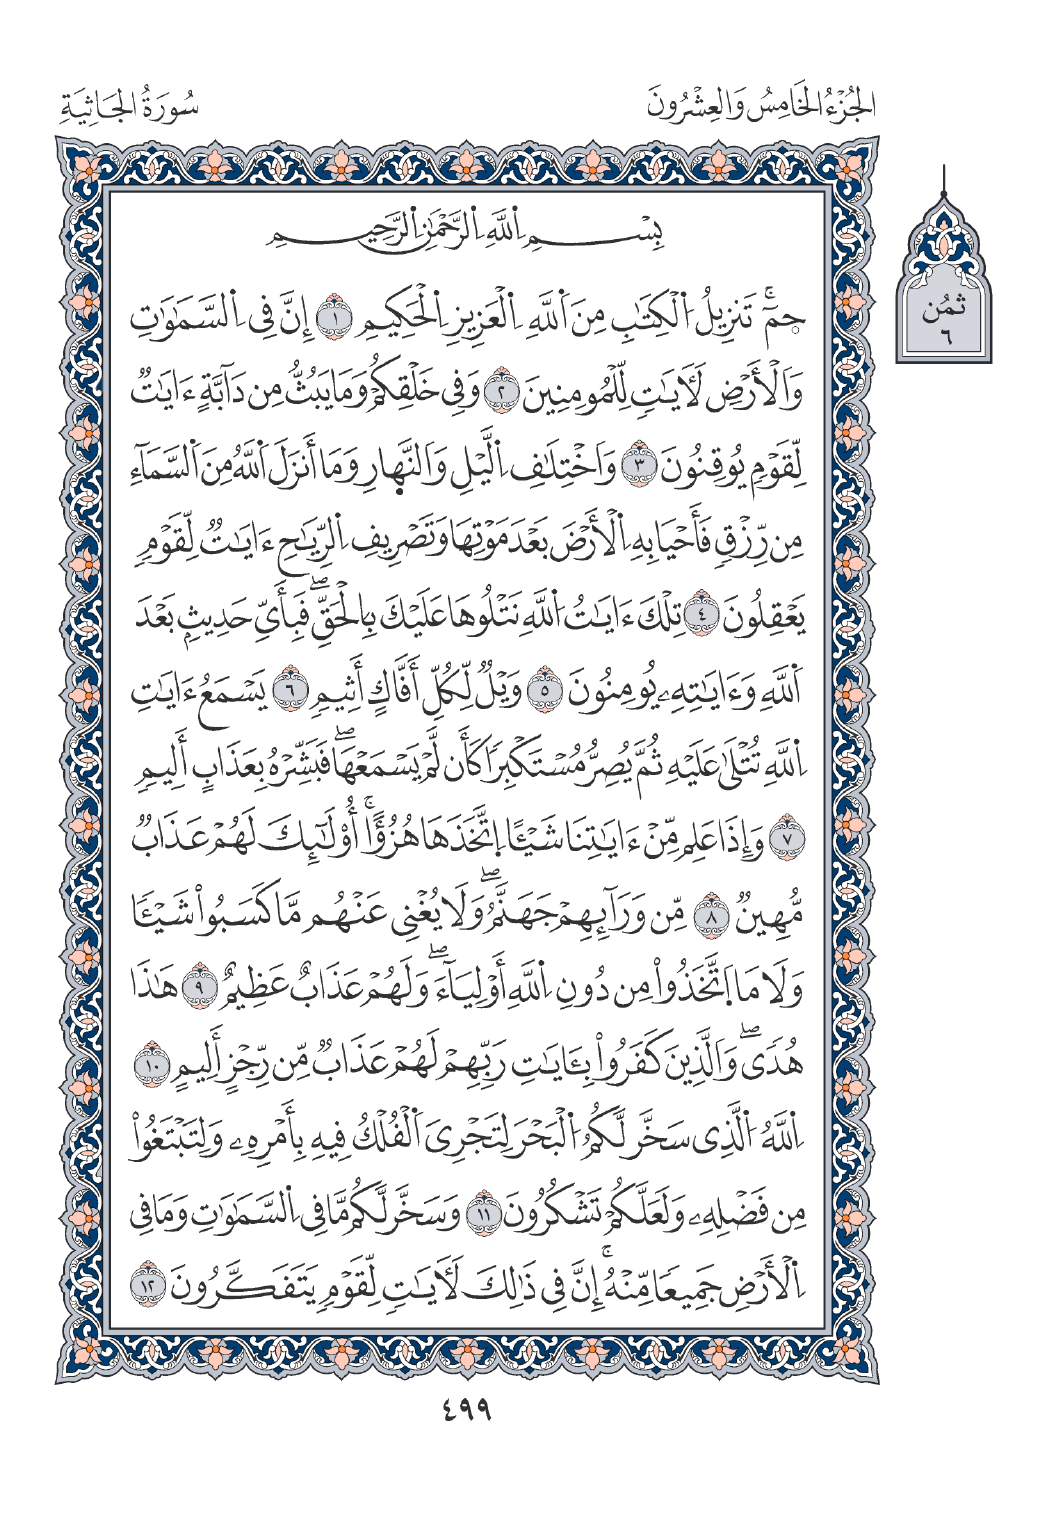 الجُزْءُ الخَامِسُ وَالعِشْرُونَ
سُورَةُ الجَاثِيَةِ
ثمُن
٦
بِسْمِ اِ۬للَّهِ اِ۬لرَّحْمَٰنِ اِ۬لرَّحِيمِ
حمِٓۚ تَنزِيلُ اُ۬لْكِتَٰبِ مِنَ اَ۬للَّهِ اِ۬لْعَزِيزِ اِ۬لْحَكِيمِ ١ إِنَّ فِى اِ۬لسَّمَٰوَٰتِ
وَالْأَرْضِ لَأٓيَٰتٖ لِّلْمُومِنِينَ ٢ وَفِى خَلْقِكُمْ وَمَا يَبُثُّ مِن دَآبَّةٍ ءَايَٰتٞ
لِّقَوْمٖ يُوقِنُونَ ٣ وَاَخْتِلَٰفِ اِ۬لَّيْلِ وَالنَّهِارِ وَمَا أَنزَلَ اَ۬للَّهُ مِنَ اَ۬لسَّمَآءِ
مِن رِّزْقٖ فَأَحْيَا بِهِ اِ۬لْأَرْضَ بَعْدَ مَوْتِهَا وَتَصْرِيفِ اِ۬لرِّيَٰحِ ءَايَٰتٞ لِّقَوْمٖ
يَعْقِلُونَ ٤ تِلْكَ ءَايَٰتُ اُ۬للَّهِ نَتْلُوهَا عَلَيْكَ بِالْحَقِّۖ فَبِأَىِّ حَدِيثِۢ بَعْدَ
اَ۬للَّهِ وَءَايَٰتِهِۦ يُومِنُونَ ٥ وَيْلٞ لِّكُلِّ أَفَّاكٍ أَثِيمٖ ٦ يَسْمَعُ ءَايَٰتِ
اِ۬للَّهِ تُتْلَىٰ عَلَيْهِ ثُمَّ يُصِرُّ مُسْتَكْبِرٗا كَأَن لَّمْ يَسْمَعْهَاۖ فَبَشِّرْهُ بِعَذَابٍ أَلِيمٖ
٧ وَإِذَا عَلِمَ مِنْ ءَايَٰتِنَا شَيْـًٔا اِ۪تَّخَذَهَا هُزُؤًاۚ أُوْلَٰٓئِكَ لَهُمْ عَذَابٞ
مُّهِينٞ ٨ مِّن وَرَآئِهِمْ جَهَنَّمُۖ وَلَا يُغْنِى عَنْهُم مَّا كَسَبُواْ شَيْـٔٗا
وَلَا مَا اَ۪تَّخَذُواْ مِن دُونِ اِ۬للَّهِ أَوْلِيَآءَۖ وَلَهُمْ عَذَابٌ عَظِيمٌ ٩ هَٰذَا
هُدٗىۖ وَالَّذِينَ كَفَرُواْ بِـَٔايَٰتِ رَبِّهِمْ لَهُمْ عَذَابٞ مِّن رِّجْزٍ أَلِيمٍ ١٠
اِ۬للَّهُ اُ۬لَّذِى سَخَّر لَّكُمُ اُ۬لْبَحْرَ لِتَجْرِىَ اَ۬لْفُلْكُ فِيهِ بِأَمْرِهِۦ وَلِتَبْتَغُواْ
مِن فَضْلِهِۦ وَلَعَلَّكُمْ تَشْكُرُونَ ١١ وَسَخَّر لَّكُم مَّا فِى اِ۬لسَّمَٰوَٰتِ وَمَا فِى
اِ۬لْأَرْضِ جَمِيعٗا مِّنْهُۚ إِنَّ فِى ذَٰلِكَ لَأٓيَٰتٖ لِّقَوْمٖ يَتَفَكَّرُونَ ١٢
٤٩٩